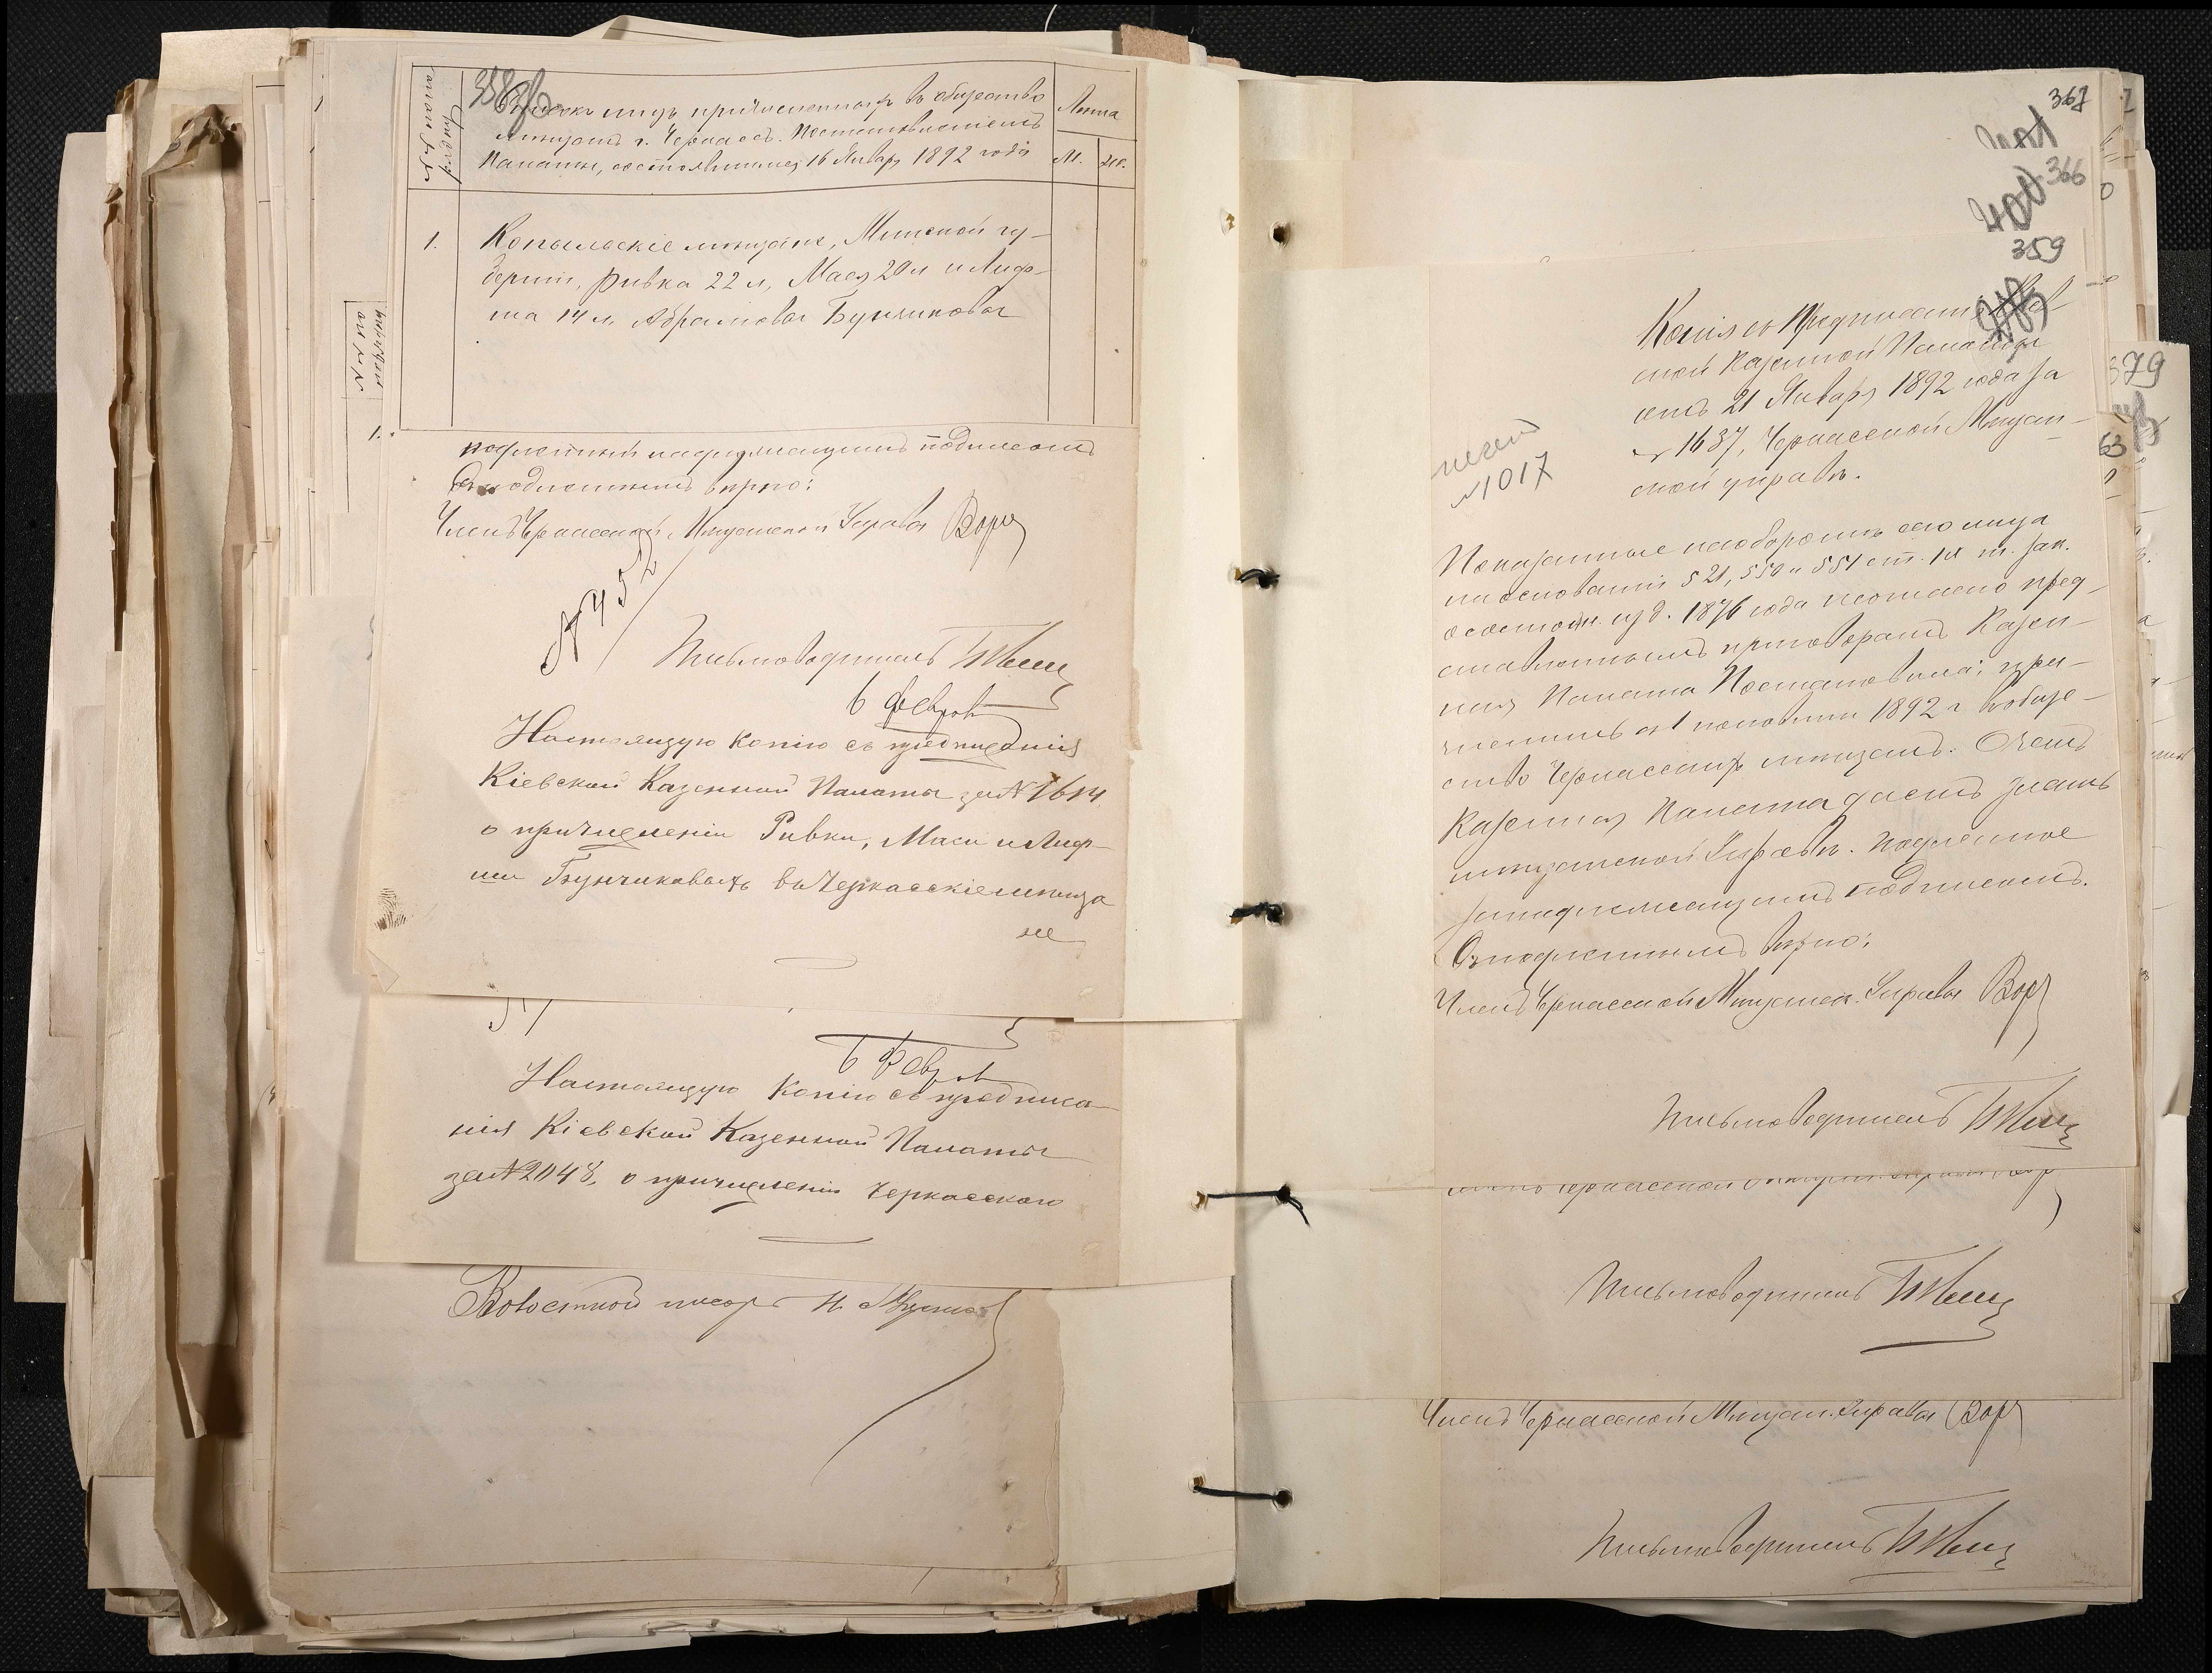 358об
Списокъ лицъ причисленныхъ въ общество
мѣщанъ г. Черкассъ. Постановленіемъ
Палаты, состоявшимся 16 Января 1892 года
Лѣта
М. Ж.
1. Копыльскіе мѣщане, Минской гу-
берніи, Ривка 22 л, Мася 20 л и Лиф-
ша 14 л. Абрамовы Бунчиковы
подлежащимъ подписомъ
вѣрно:
Членъ Черкасской Мѣщанской Управы
№ 452
Письмоводитель
6 Февраля
Настоящую копію съ предписанія
Кіевской Казенной Палаты за № 1614
о причисленіи Ривки, Маси и Лиф-
ши Бунчиковыхъ въ Черкасскіе мѣща
не
6 Февраля
Настоящую копію съ предписа-
нія Кіевской Казенной Палаты
за № 2048, о причисленіи Черкасскаго
Волостной писарь Н.
1.
367
401
366
400
359
Копія съ Предписанія
ской Казенной Палаты
отъ 21 Января 1892 года за
№ 1637, Черкасской Мѣщан-
ской управѣ.
№ 1017
Показанные на оборотѣ сего лица
на основаніи 521, 550 и 551 ст. IX т. Зак.
о состоян. изд. 1876 года и согласно пред-
ставленнымъ приговорамъ Казен-
ная Палата Постановила: при-
числить съ 1 половины 1892 г въ обще-
ство Черкасскихъ мѣщанъ. О чемъ
Казенная Палата даетъ знать
мѣщанской Управѣ. Подлинное
за надлежащимъ подписомъ.
Съ подлиннымъ вѣрно:
Членъ Черкасской Мѣщанск. Управы
Письмоводитель
Письмоводитель
Членъ Черкасской Мѣщан. Управы
Письмоводитель
379
63